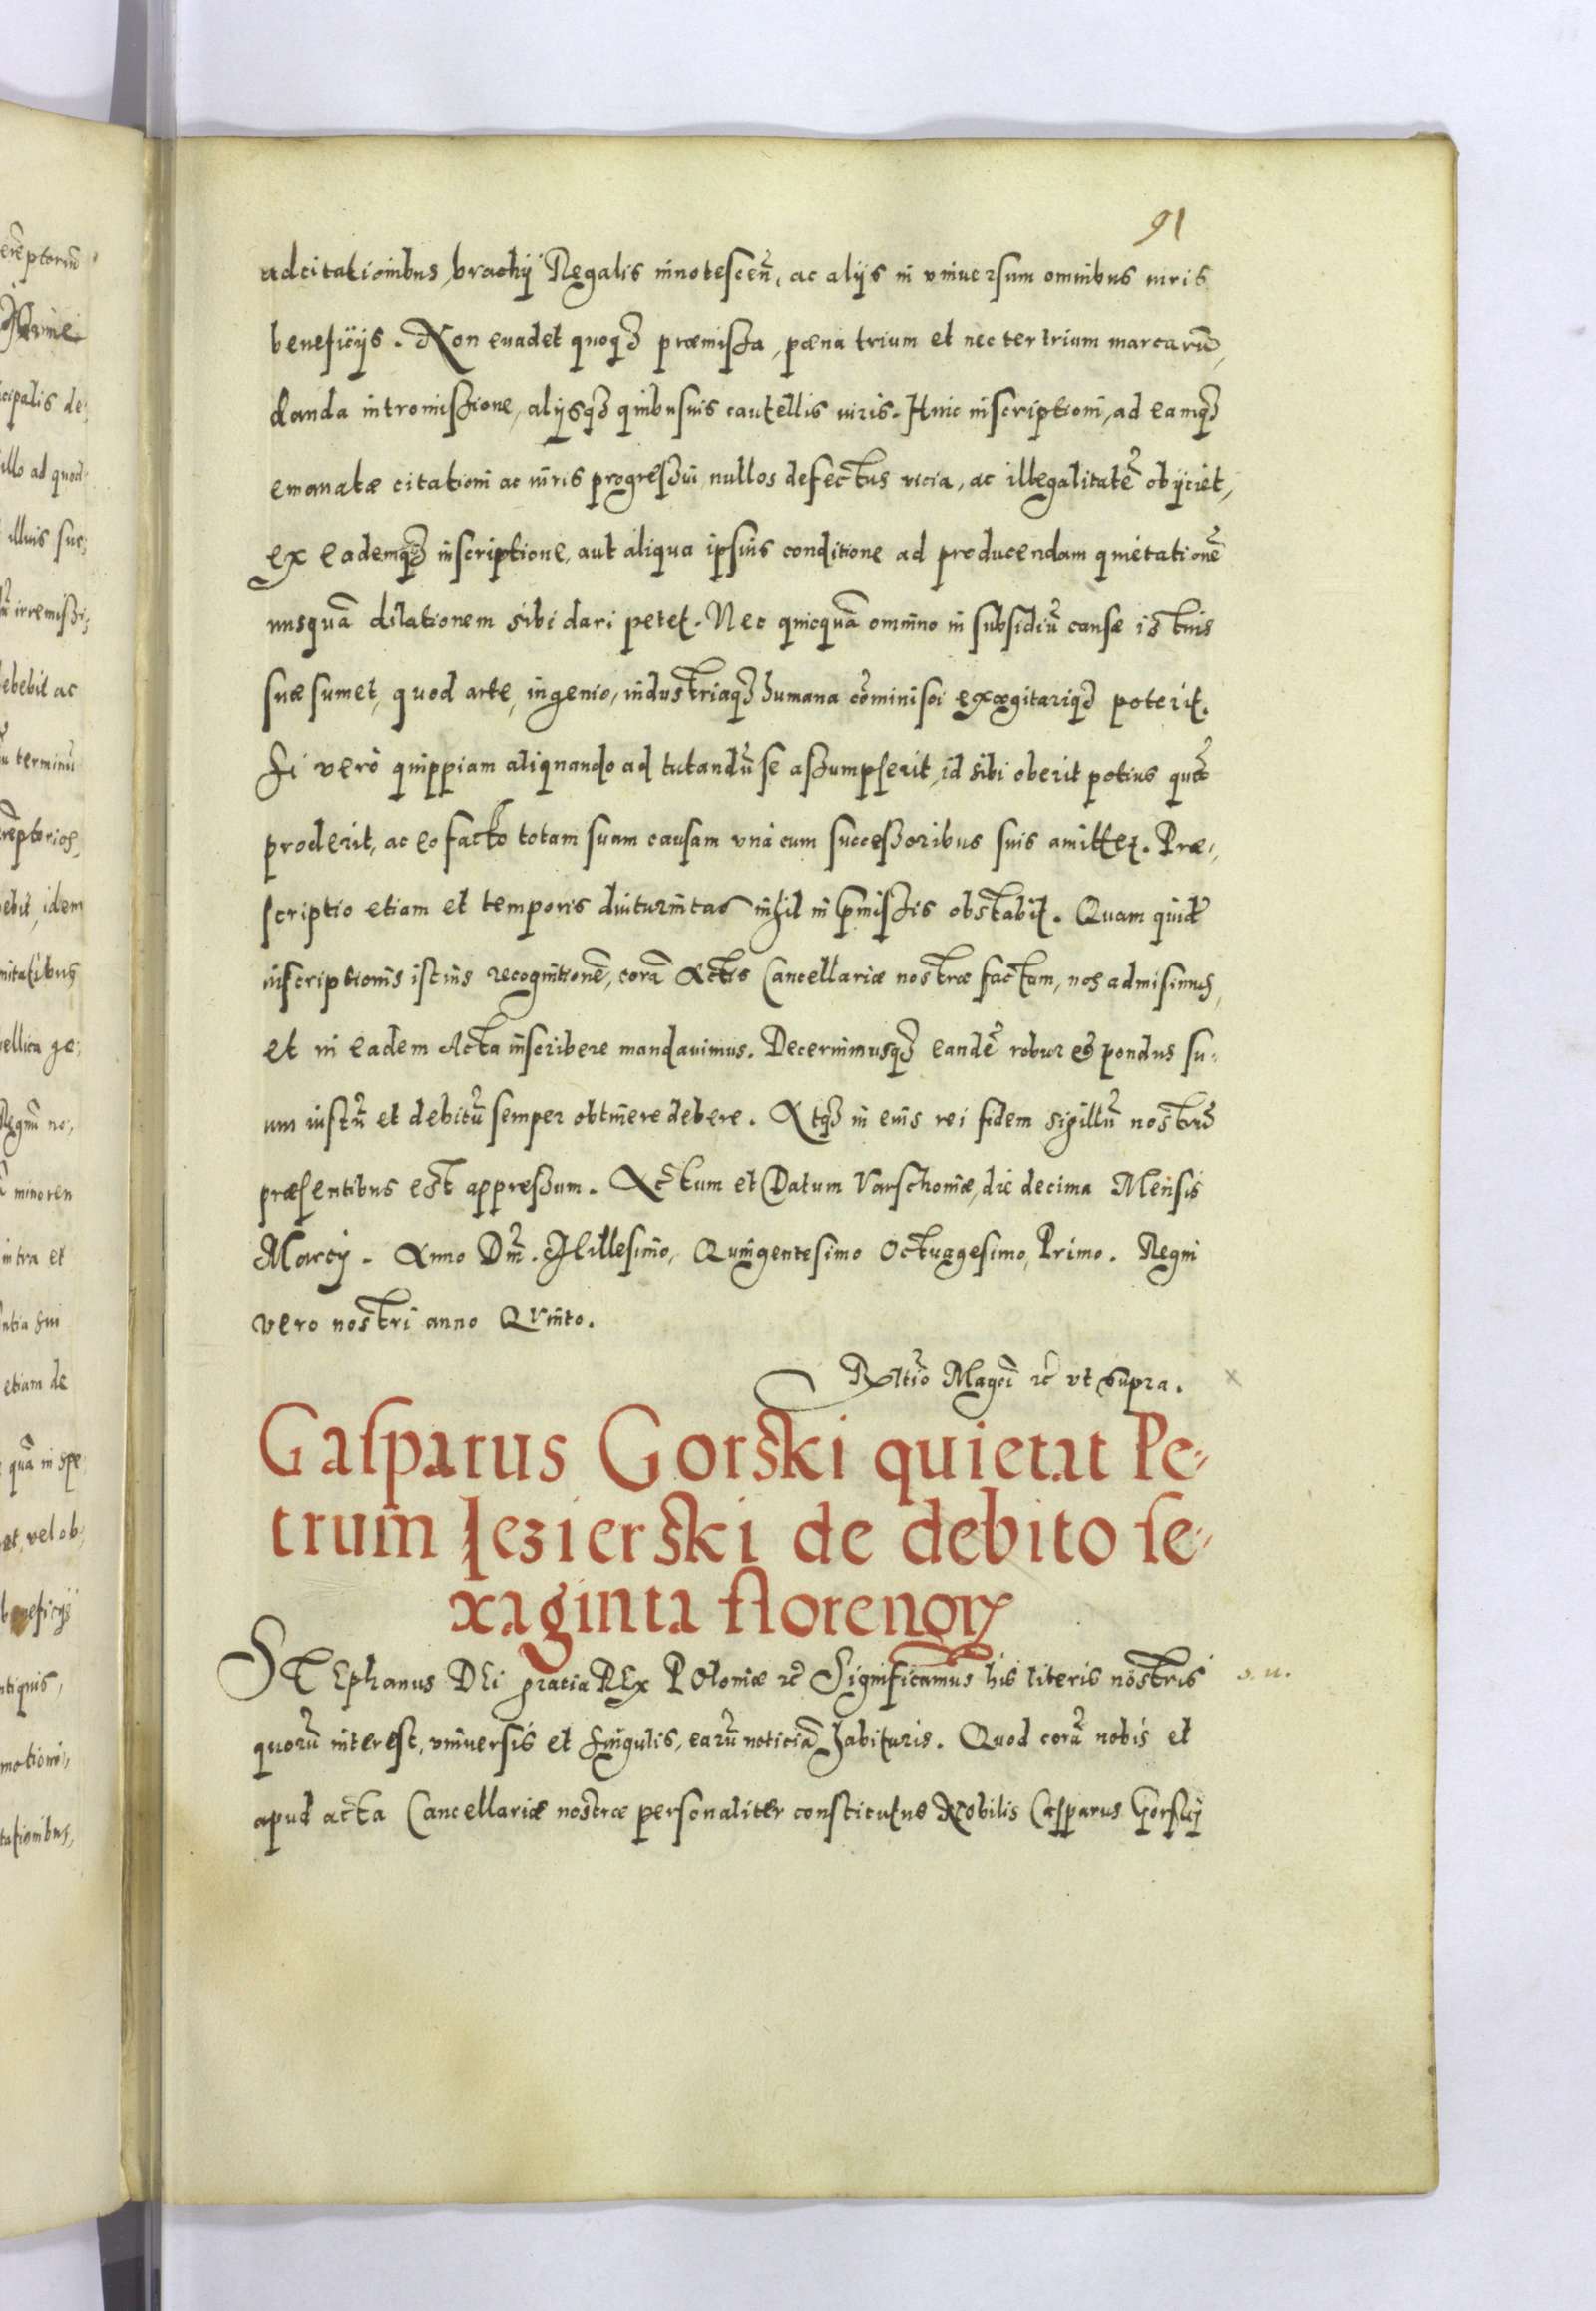 91
adcitationibus, brachij Regalis innotescen͂, ac alijs in vniuersum omnibus iuris
beneficijs. Non euadet quoqꝫ præmissa, pœna trium et nec ter trium marcarū,
danda intromissione, alijsqꝫ quibusuis cautellis iuris. Huic inscriptioni, ad eamqꝫ
emanatæ citationi ac iuris progressui nullos defectus vicia, ac illegalitatē obijciet,
ex eademqꝫ inscriptione, aut aliqua ipsius conditione ad producendam quietationē
nusquā dilationem sibi dari petet. Nec quicquā omnino in subsidiū causæ istius
suæ sumet, quod arte, ingenio, industriaqꝫ humana cōminisci excogitariqꝫ poterit.
Si verò quippiam aliquando ad tutandū se assumpserit, id sibi oberit potius quā
proderit, ac eo facto totam suam causam vnà cum successoribus suis amittet. Præ-
scriptio etiam et temporis diuturnitas nihil in p̄missis obstabit. Quam quidē
inscriptionis istius recognitionē, corā Actis Cancellariæ nostræ factam, nos admisimus,
et in eadem Acta inscribere mandauimus. Decernimusqꝫ eandē robur et pondus su-
um iustū et debitū semper obtinere debere. Atqꝫ in eius rei fidem sigillū nostrū
præsentibus est appressum. Actum et Datum Varschouiæ, die decima Mensis
Marcij. Anno Dn̄i. Millesimo, Quingentesimo Octuagesimo, Primo. Regni
vero nostri anno Quinto.
Rltio Magci ꝛc̄ vt supra.
Gasparus Gorski quietat Pe-
trum Iezierski de debito se-
xaginta florenoꝝ
STEphanus DEi gratia REx POloniæ ꝛc̄ Significamus his literis nostris s. u.
quorū interest, vniuersis et singulis, earū noticiā habituris. Quod corā nobis et
apud acta Cancellariæ nostræ personaliter constitutus Nobilis Casparus Gorskij